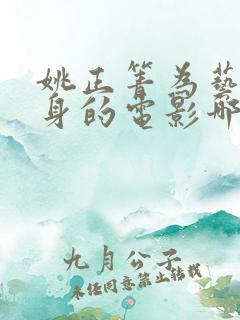 姚正箐為藝
身的電影那
九月公子
未经同意禁止转载